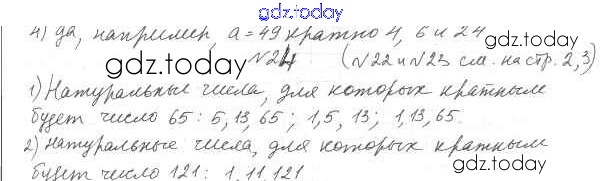 gdz.today
4) да, например, а = 49 кратно 4, 6 и 24
gdz.today
gdz.today
№24 (№22 и №23 см. на стр. 2, 3)
1) Натуральные числа, для которых кратным
будет число 65: 5, 13, 65; 1, 5, 13; 1, 13, 65.
2) натуральные числа, для которых кратным
gdz.today
gdz.today
будет число 121: 1, 11, 121